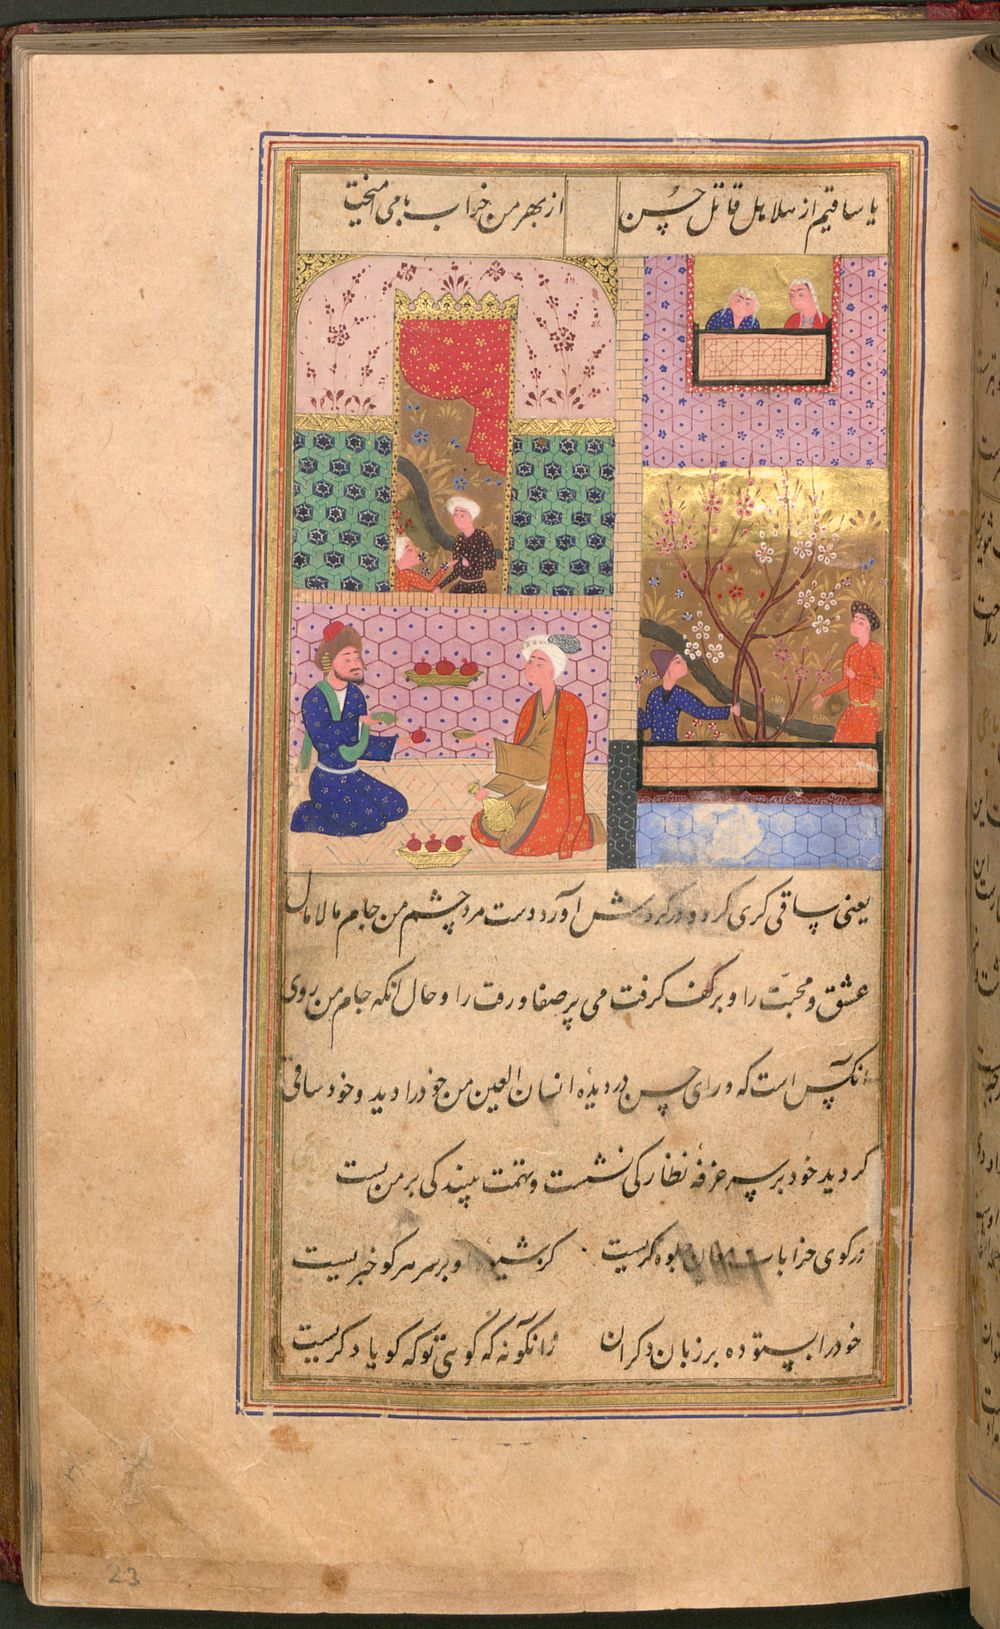 یا ساقیم از هلاهل قاتل حسن از بهر من خراب با می آمیخت
یعنی ساقی کری کرد و در کردش آورد دست مرد چشم من جام مالامال
عشق و محبّت را و بر کف کرفت می پر صفا و رقت را و حال انکه جام من روی
انکس است که ورای حسن در دیدۀ انسان العین من خود را دید و خود ساقی
کردید خود بر سر غرفۀ نظارکی نشست و تهمت بیندکی بر من بست
در کوی خرابات جلوه کریست کز شیوۀ و بر سر هر کو خبریست
خود را بستوده بر زبان دکران زانکونه که کویی تو که کویا دکریست
23